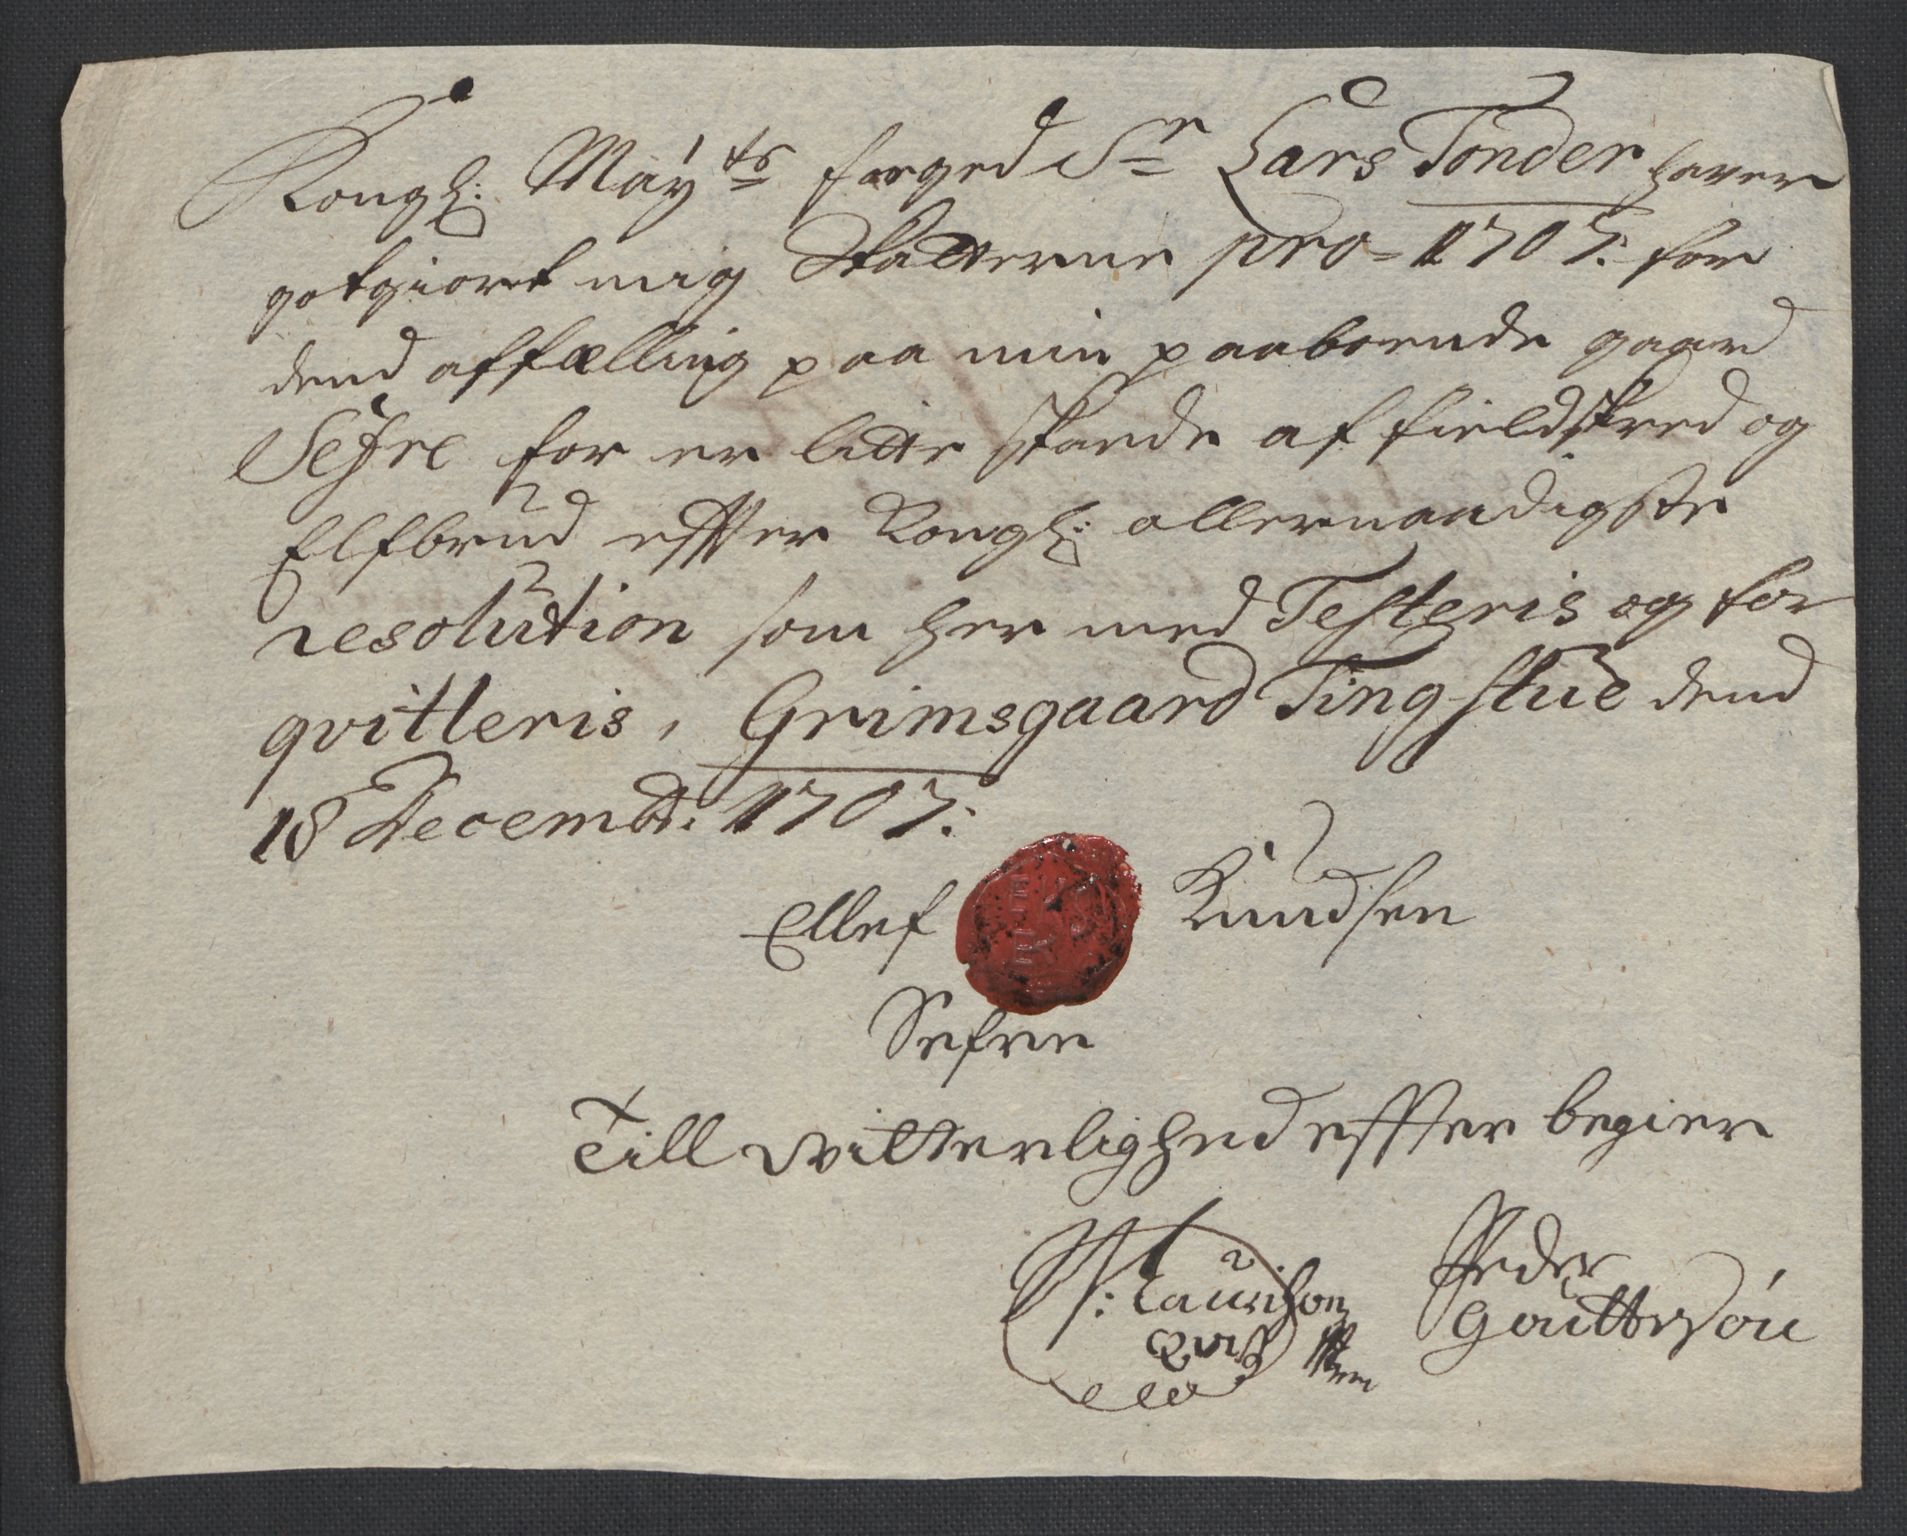 Kongl: Maÿ.ts foiged Sr Lars Tonder haver
gotgiort mig Skatterne pro = 1707: for
dend affælling paa min paaboende gaard
Sefre for er litte skaede af fieldskred og
Elfbrud effter Kongl: allernaadigste
resolution som her med Testeris og for
qvitteris, Grimsgaard Tingstue dend
18 Decembr: 1707:
Ellef Knudsen
Sefree
Till vitterlighed effter begier
Laurison Peder
Qvist Gouttesøn